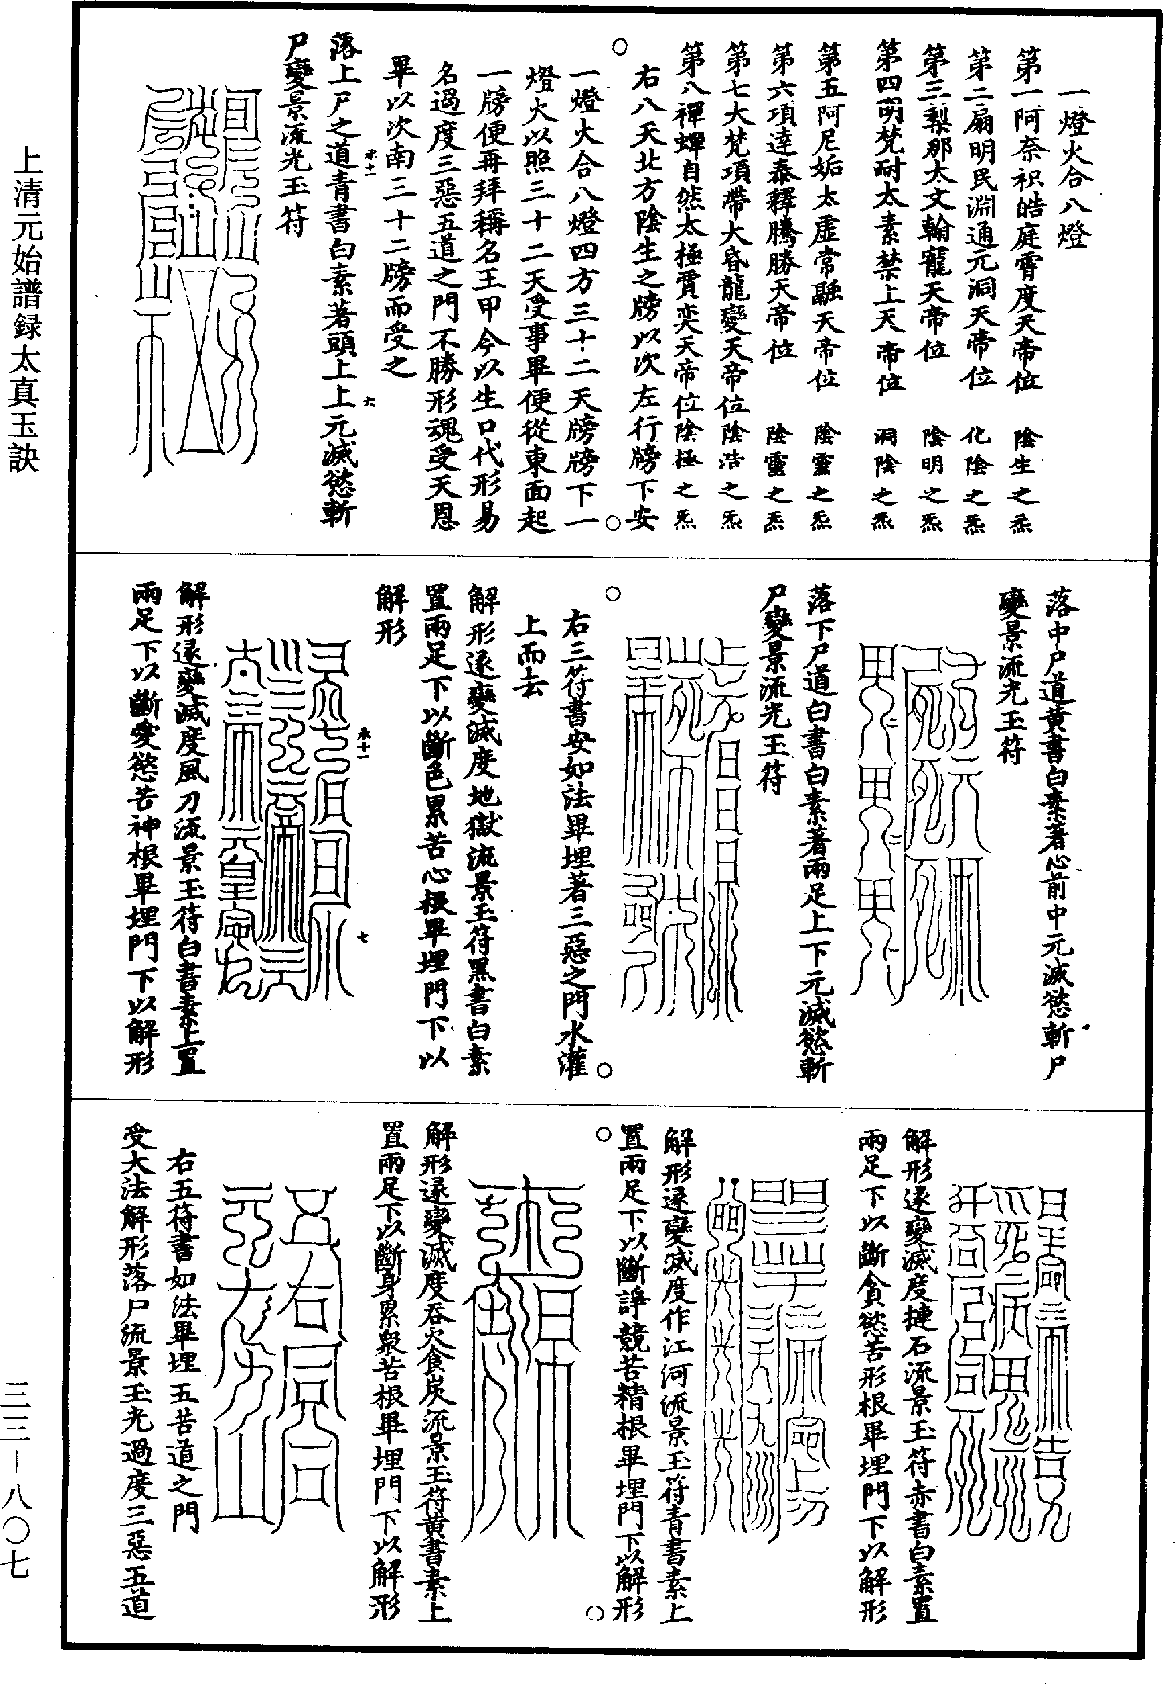 一燈火合八燈
第一阿奈祇皓庭霄度天帝位　陰生之炁
第二扇明民淵通元洞天帝位　化陰之炁
第三梨那太文翰寵天帝位　陰明之炁
第四明梵耐太素禁上天帝位　洞陰之炁
第五阿尼姤太虛常融天帝位　陰靈之炁
第六項達泰釋騰勝天帝位　陰靈之炁
第七大梵項帶大昏龍變天帝位陰浩之炁
第八禪蟬自然太極霄奕天帝位陰極之炁
右八天北方陰生之牓以次左行牓下安
一燈火合八燈四方三十二天牓牓下一
燈火以照三十二天受事畢便從東面起
一牓便再拜稱名王甲今以生口代形易
名過度三惡五道之門不勝形魂受天恩
畢以次南三十二牓而受之
落上尸之道青書白素著頭上上元滅慾斬
尸變景流光玉符
落中尸道黃書白素著心前中元滅慾斬尸
變景流光玉符
落下尸道白書白素著兩足上下元滅慾斬
尸變景流光玉符
右三符書安如法畢埋著三惡之門水灌
上而去
解形遂變滅度地獄流景玉符黑書白素
置兩足下以斷色累苦心根畢埋門下以
解形
解形遂變滅度風刀流景玉符白書素上置
兩足下以斷愛慾苦神根畢埋門下以解形
解形遂變滅度揵石流景玉符赤書白素置
兩足下以斷貪慾苦形根畢埋門下以解形
解形遂變滅度作江河流景玉符青書素上
置兩足下以斷諍競苦精根畢埋門下以解形
解形遂變滅度吞火食炭流景玉符黃書素上
置兩足下以斷身累泉苦根畢埋門下以解形
右五符書如法畢埋五苦道之門
受大法解形落尸流景玉光過度三惡五道
上清元始譜録太真玉訣
三三－八〇七